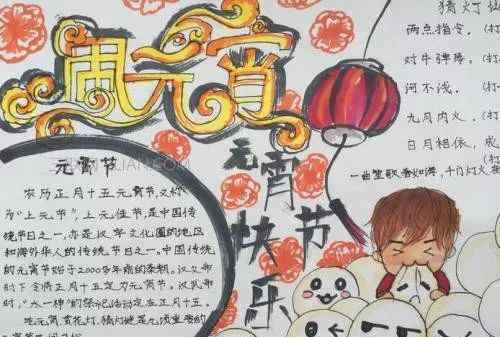 闹元宵
元宵节
农历正月十五元宵节，又称
为"上元节"，上元佳节，是中国传
统节日之一，亦是汉字文化圈的地区
和海外华人的传统节日之一，中国传统
的元宵节始于2000多年前的秦朝，汉文帝
时下令将正月十五定为元宵节，汉武帝
时，"太一神"的祭祀活动定在正月十五。
吃元宵，赏花灯，猜灯谜是元
元宵节
快乐
猜灯
两点指令。(打
对牛弹琴。(打
河不浅。(打
九月内火。(打
日月相依，成
一曲笙歌春如海，千门灯火